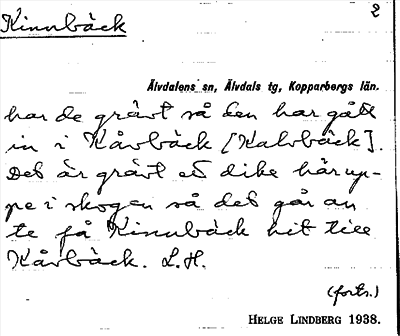 Kinnbäck
2
Älvdalens sn, Älvdals tg, Kopparbergs län.
har de grävt så den har gått
in i Kåvbäck [Kalvbäck].
Det är grävt ett dike här up-
pe i skogen så det går an
te få Kinnbäck hit till
Kåvbäck. L.H.
(forts.)
HELGE LINDBERG 1938.